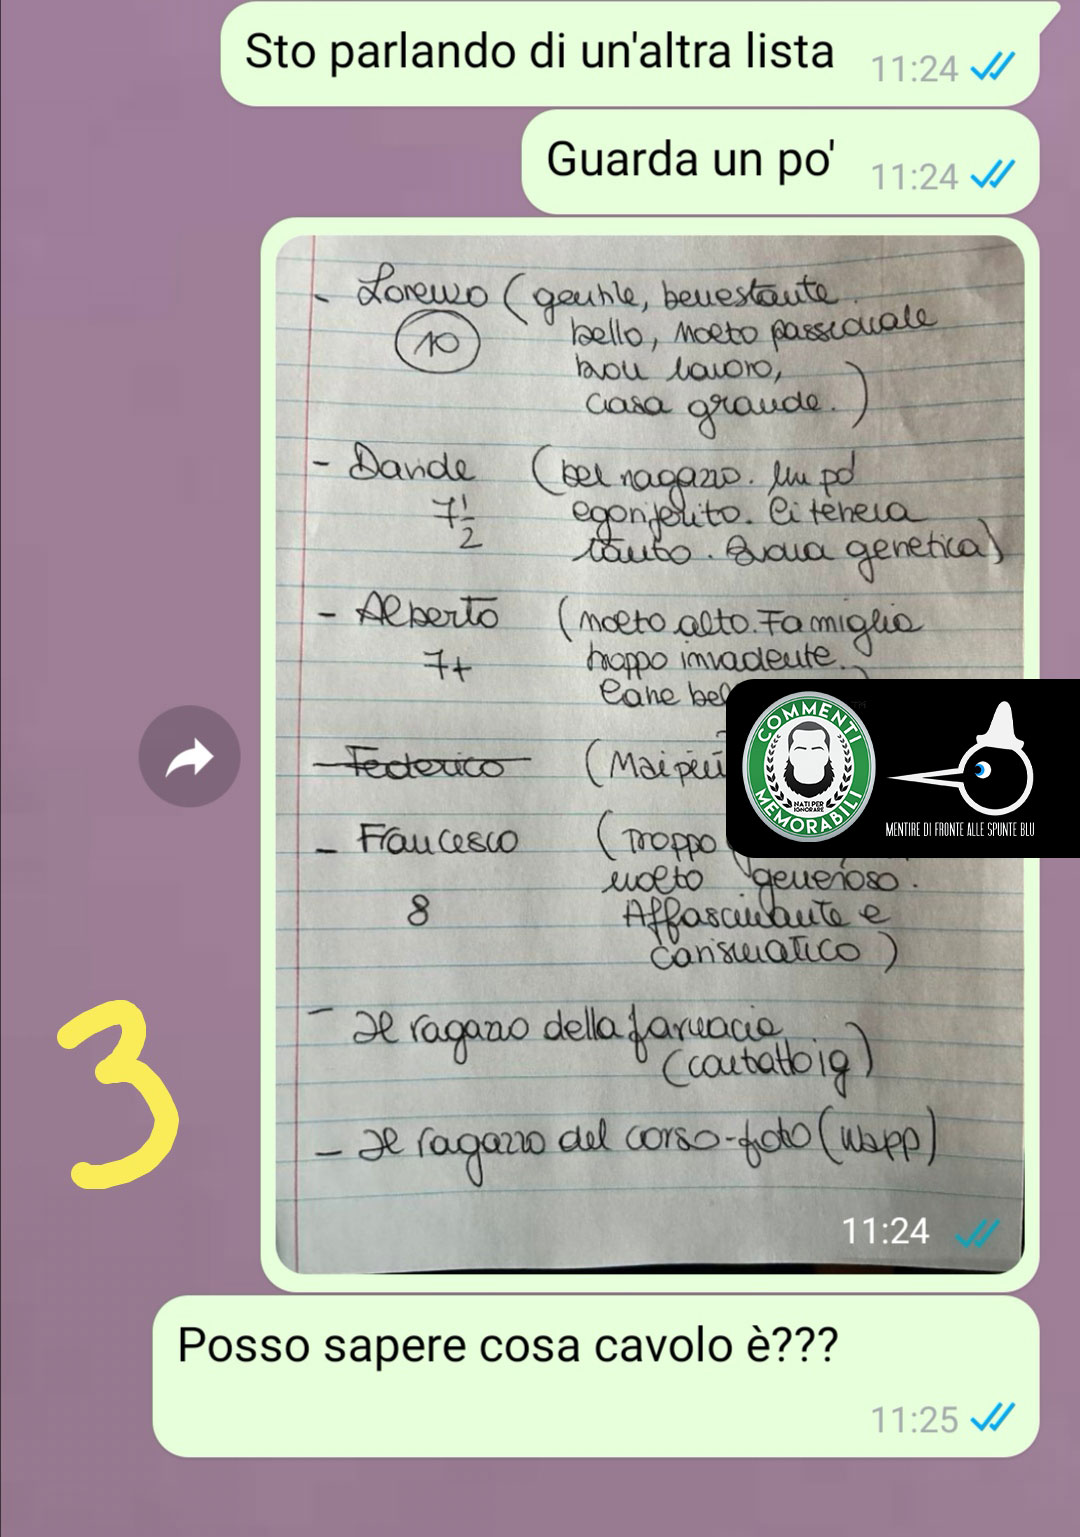 Sto parlando di un'altra lista
11:24
Guarda un po'
11:24
- Lorenzo (gentile, benestante
10 bello, molto passionale
buon lavoro,
casa grande.)
- Davide (bel ragazzo. Un po'
7 1/2 egoriferito. Ci teneva
tanto. Buona genetica)
- Alberto (molto alto. Famiglia
7+ troppo invadente.
Cane bel
- Federico (Mai più
- Francesco (Troppo
8 molto generoso.
Affascinante e
carismatico)
- Il ragazzo della farmacia
(contatto ig)
- Il ragazzo del corso-foto (Wapp)
11:24
COMMENTI
MEMORABILI
NATI PER
IGNORARE
MENTIRE DI FRONTE ALLE SPUNTE BLU
3
Posso sapere cosa cavolo è???
11:25